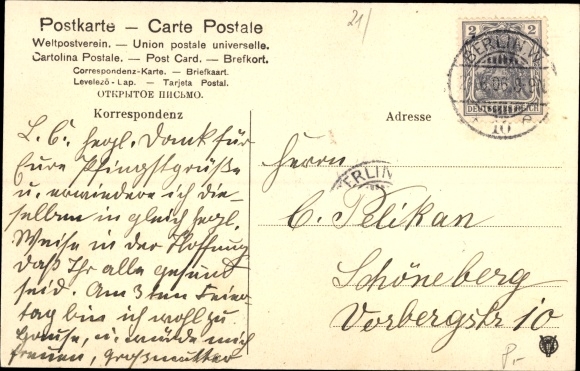 Postkarte — Carte Postale
Weltpostverein. — Union postale universelle.
Cartolina Postale. — Post Card. — Brefkort.
Correspondenz-Karte. — Briefkaart.
Levelező-Lap. — Tarjeta Postal.
ОТКРЫТОЕ ПИСЬМО.
21/
2 2
DEUTSCHES REICH
BERLIN W.
10
Korrespondenz
Adresse
L. C. hrzl. Dank für
Eure Pfingstgrüße
u. erwiedere ich die-
selben in gleich hrzl.
Weise in der Hoffnung
daß Ihr alle gesund
seid. Am 3ten Feier
tag bin ich wohl zu
Hause, u. würde mich
freuen, Großmutter
Herrn
BERLIN
C. Pelikan
Schöneberg
Vorbergstr 10